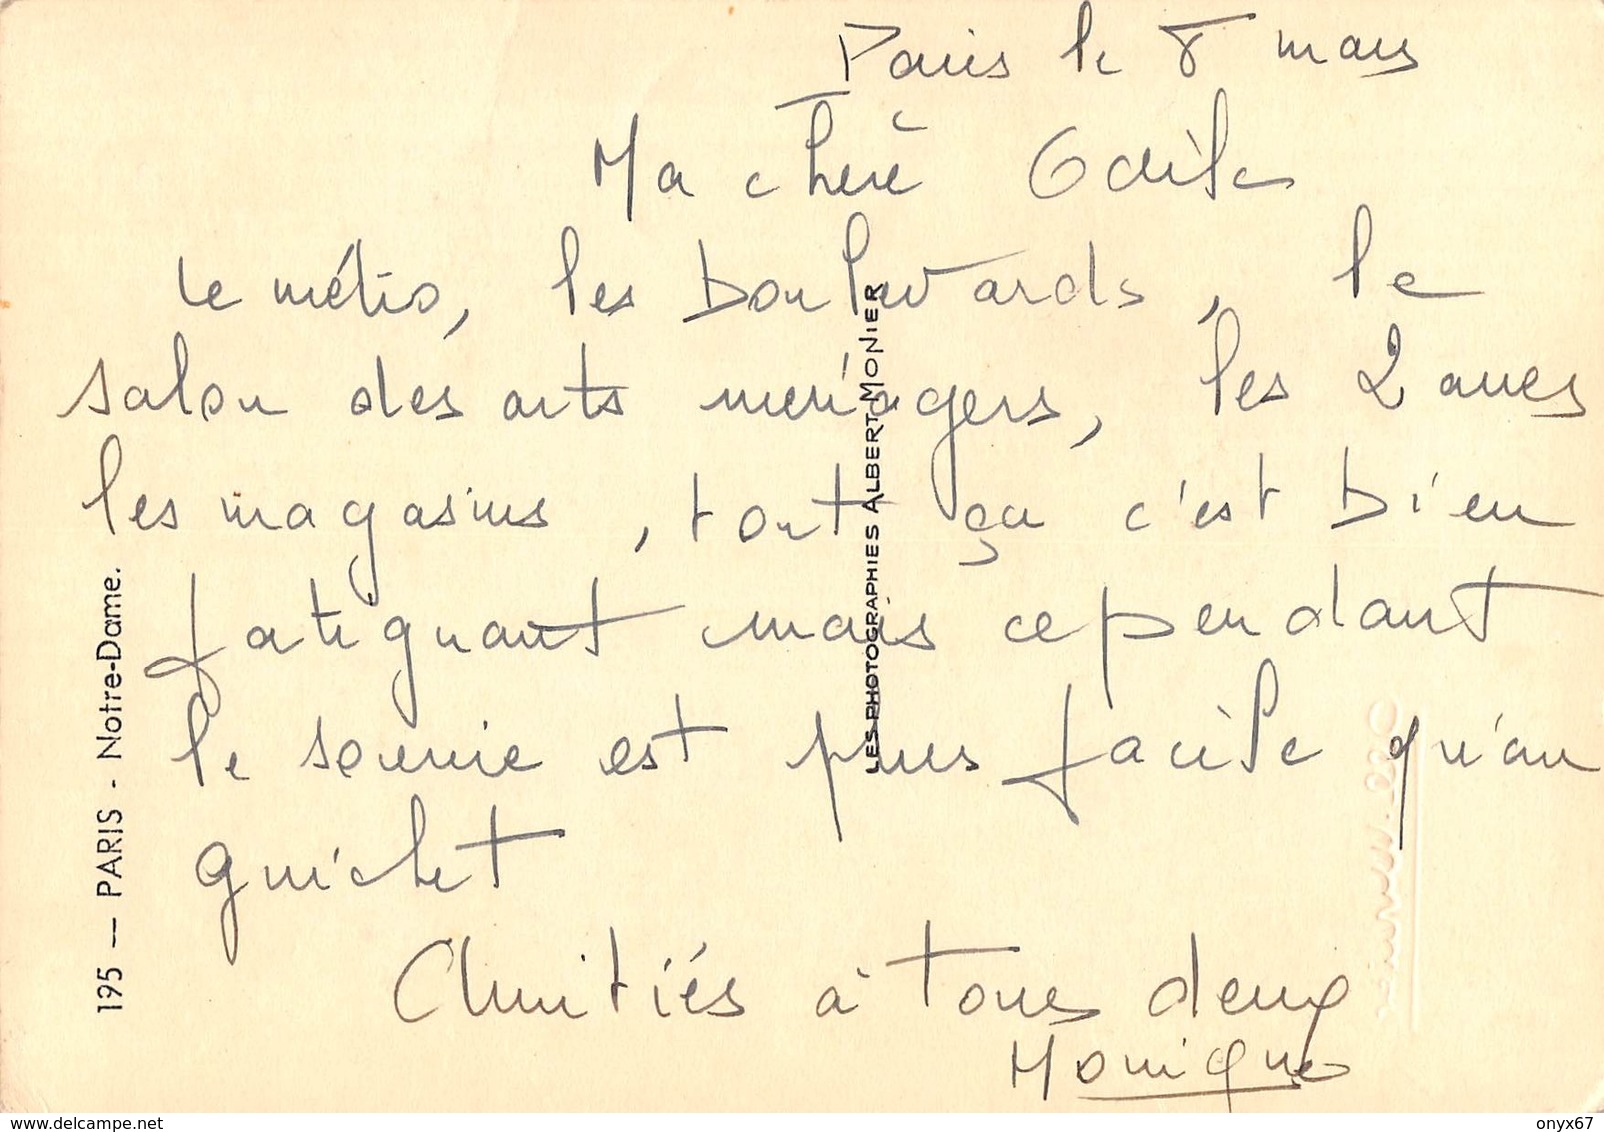 Paris le 8 mars
Ma chère Odile
Le métro, les boulevards, le
salon des arts ménagers, les 2 anes
les magasins, tout ça c'est bien
fatiguant mais cependant
le sourire est plus facile qu'au
guichet
Amitiés à tous deux
Monique
195 — PARIS - Notre-Dame.
LES PHOTOGRAPHIES ALBERT MONIER
delcampe.net
onyx67